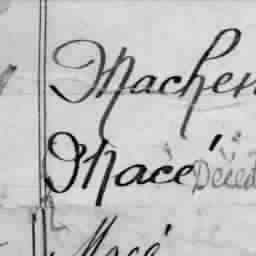 Machen
Macé Decéd
Macé